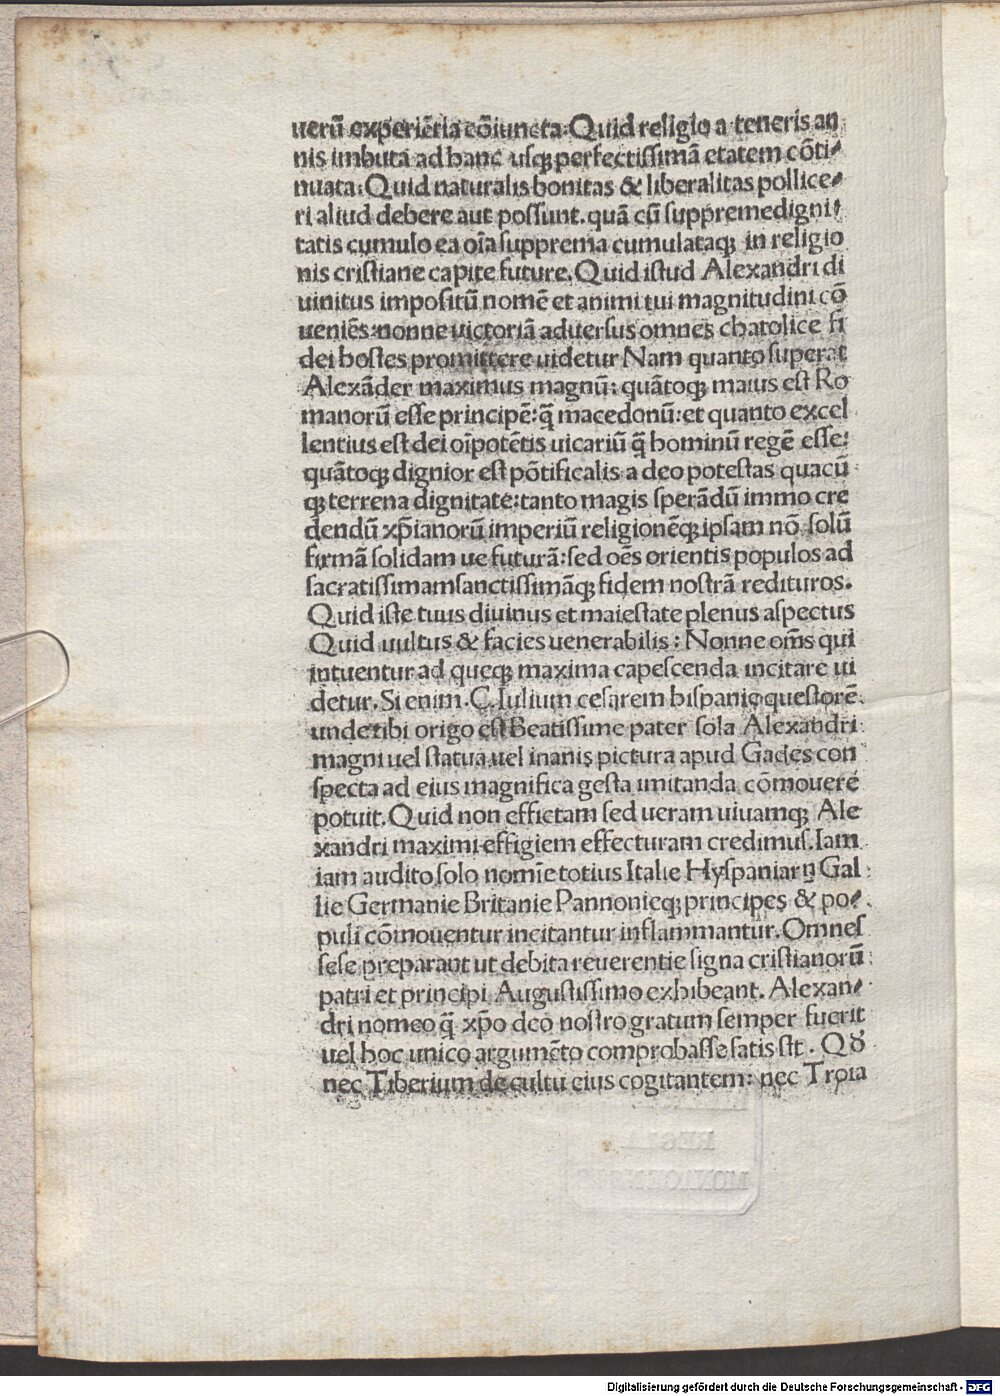 uerū experiētia cōiuncta. Quid religio a teneris an
nis imbuta ad hanc usqꝫ perfectissimā etatem cōti⸗
nuata: Quid naturalis bonitas & liberalitas pollice⸗
ri aliud debere aut possunt. quā cū suppremedigni⸗
tatis cumulo ea oīa supprema cumulataqꝫ in religio
nis cristiane capite future. Quid istud Alexandri di
uinitus impositū nomē et animi tui magnitudini cō
ueniēs: nonne uictoriā aduersus omnes chatolice fi
dei hostes promittere uidetur Nam quanto superat
Alexāder maximus magnū: quātoqꝫ maius est Ro
manorū esse principē: q̄ macedonū: et quanto excel
lentius est dei oīpotētis uicariū q̄ hominū regē esse:
quātoqꝫ dignior est pōtificalis a deo potestas quacū
qꝫ terrena dignitate: tanto magis sperādū immo cre
dendū xp̄ianorū imperiū religionēqꝫ ipsam nō solū
firmā solidam ue futurā: sed oēs orientis populos ad
sacratissimamsanctissimāqꝫ fidem nostrā redituros.
Quid iste tuus diuinus et maiestate plenus aspectus
Quid uultus & facies uenerabilis: Nonne om̄s qui
intuentur ad queqꝫ maxima capescenda incitare ui
detur. Si enim. C. Iulium cesarem hispanie questorē
unde tibi origo est Beatissime pater sola Alexandri
magni uel statua uel inanis pictura apud Gades con
specta ad eius magnifica gesta imitanda cōmouere
potuit. Quid non effictam sed ueram uiuamqꝫ Ale
xandri maximi effigiem effecturam credimus. Iam
iam audito solo nomīe totius Italie Hyspaniarꝝ Gal
lie Germanie Britanie Pannonieqꝫ principes & po⸗
puli cōmouentur incitantur inflammantur. Omnes
sese preparant ut debita reuerentie signa cristianorū
patri et principi Augustissimo exhibeant. Alexan⸗
dri nomeo q̄ xp̄o deo nostro gratum semper fuerit
uel hoc unico argumēto comprobasse satis sit. Qđ
nec Tiberium de cultu eius cogitantem: nec Troia
REGIA
Digitalisierung gefördert durch die Deutsche Forschungsgemeinschaft - DFG